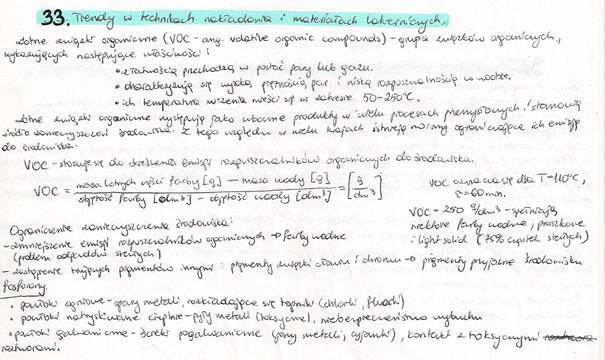 33. Trendy w technikach nakładania i materiałach lakierniczych.
Lotne związki organiczne (VOC - ang. volative organic compounds) - grupa związków organicznych,
wykazujących następujące właściwości:
• z łatwością przechodzą w postać pary lub gazu.
• charakteryzują się wysoką prężnością par i niską rozpuszczalnością w wodzie.
• ich temperatura wrzenia mieści się w zakresie 50-250°C.
Lotne związki organiczne występują jako uboczne produkty w wielu procesach przemysłowych i stanowią
źródło zanieczyszczeń środowiska. Z tego względu w wielu krajach istnieją normy ograniczające ich emisję
do środowiska.
VOC - stosuje się do określenia emisji rozpuszczalników organicznych do środowiska.
VOC = masa lotnych części farby [g] - masa wody [g] / objętość farby [dm³] - objętość wody [dm³] = [g/dm³]
VOC oznacza się dla T=110°C,
τ=60min.
VOC = 250 g/dm³ - spełniają
niektóre farby wodne, proszkowe
i light solid (75% cząstek stałych)
Ograniczenie zanieczyszczenia środowiska:
- zmniejszenie emisji rozpuszczalników organicznych → farby wodne
(problem odpadów stałych)
- zastąpienie trujących pigmentów innymi: pigmenty związki ołowiu i chromu → pigmenty przyjazne środowisku
fosforany.
• powłoki ogniowe - opary metali, rozkładające się topniki (chlorki, fluorki)
• powłoki natryskiwane cieplnie - pyły metali (toksyczne), niebezpieczeństwo wybuchu
• powłoki galwaniczne - ścieki pogalwaniczne (jony metali, cyjanki), kontakt z toksycznymi
roztworami.